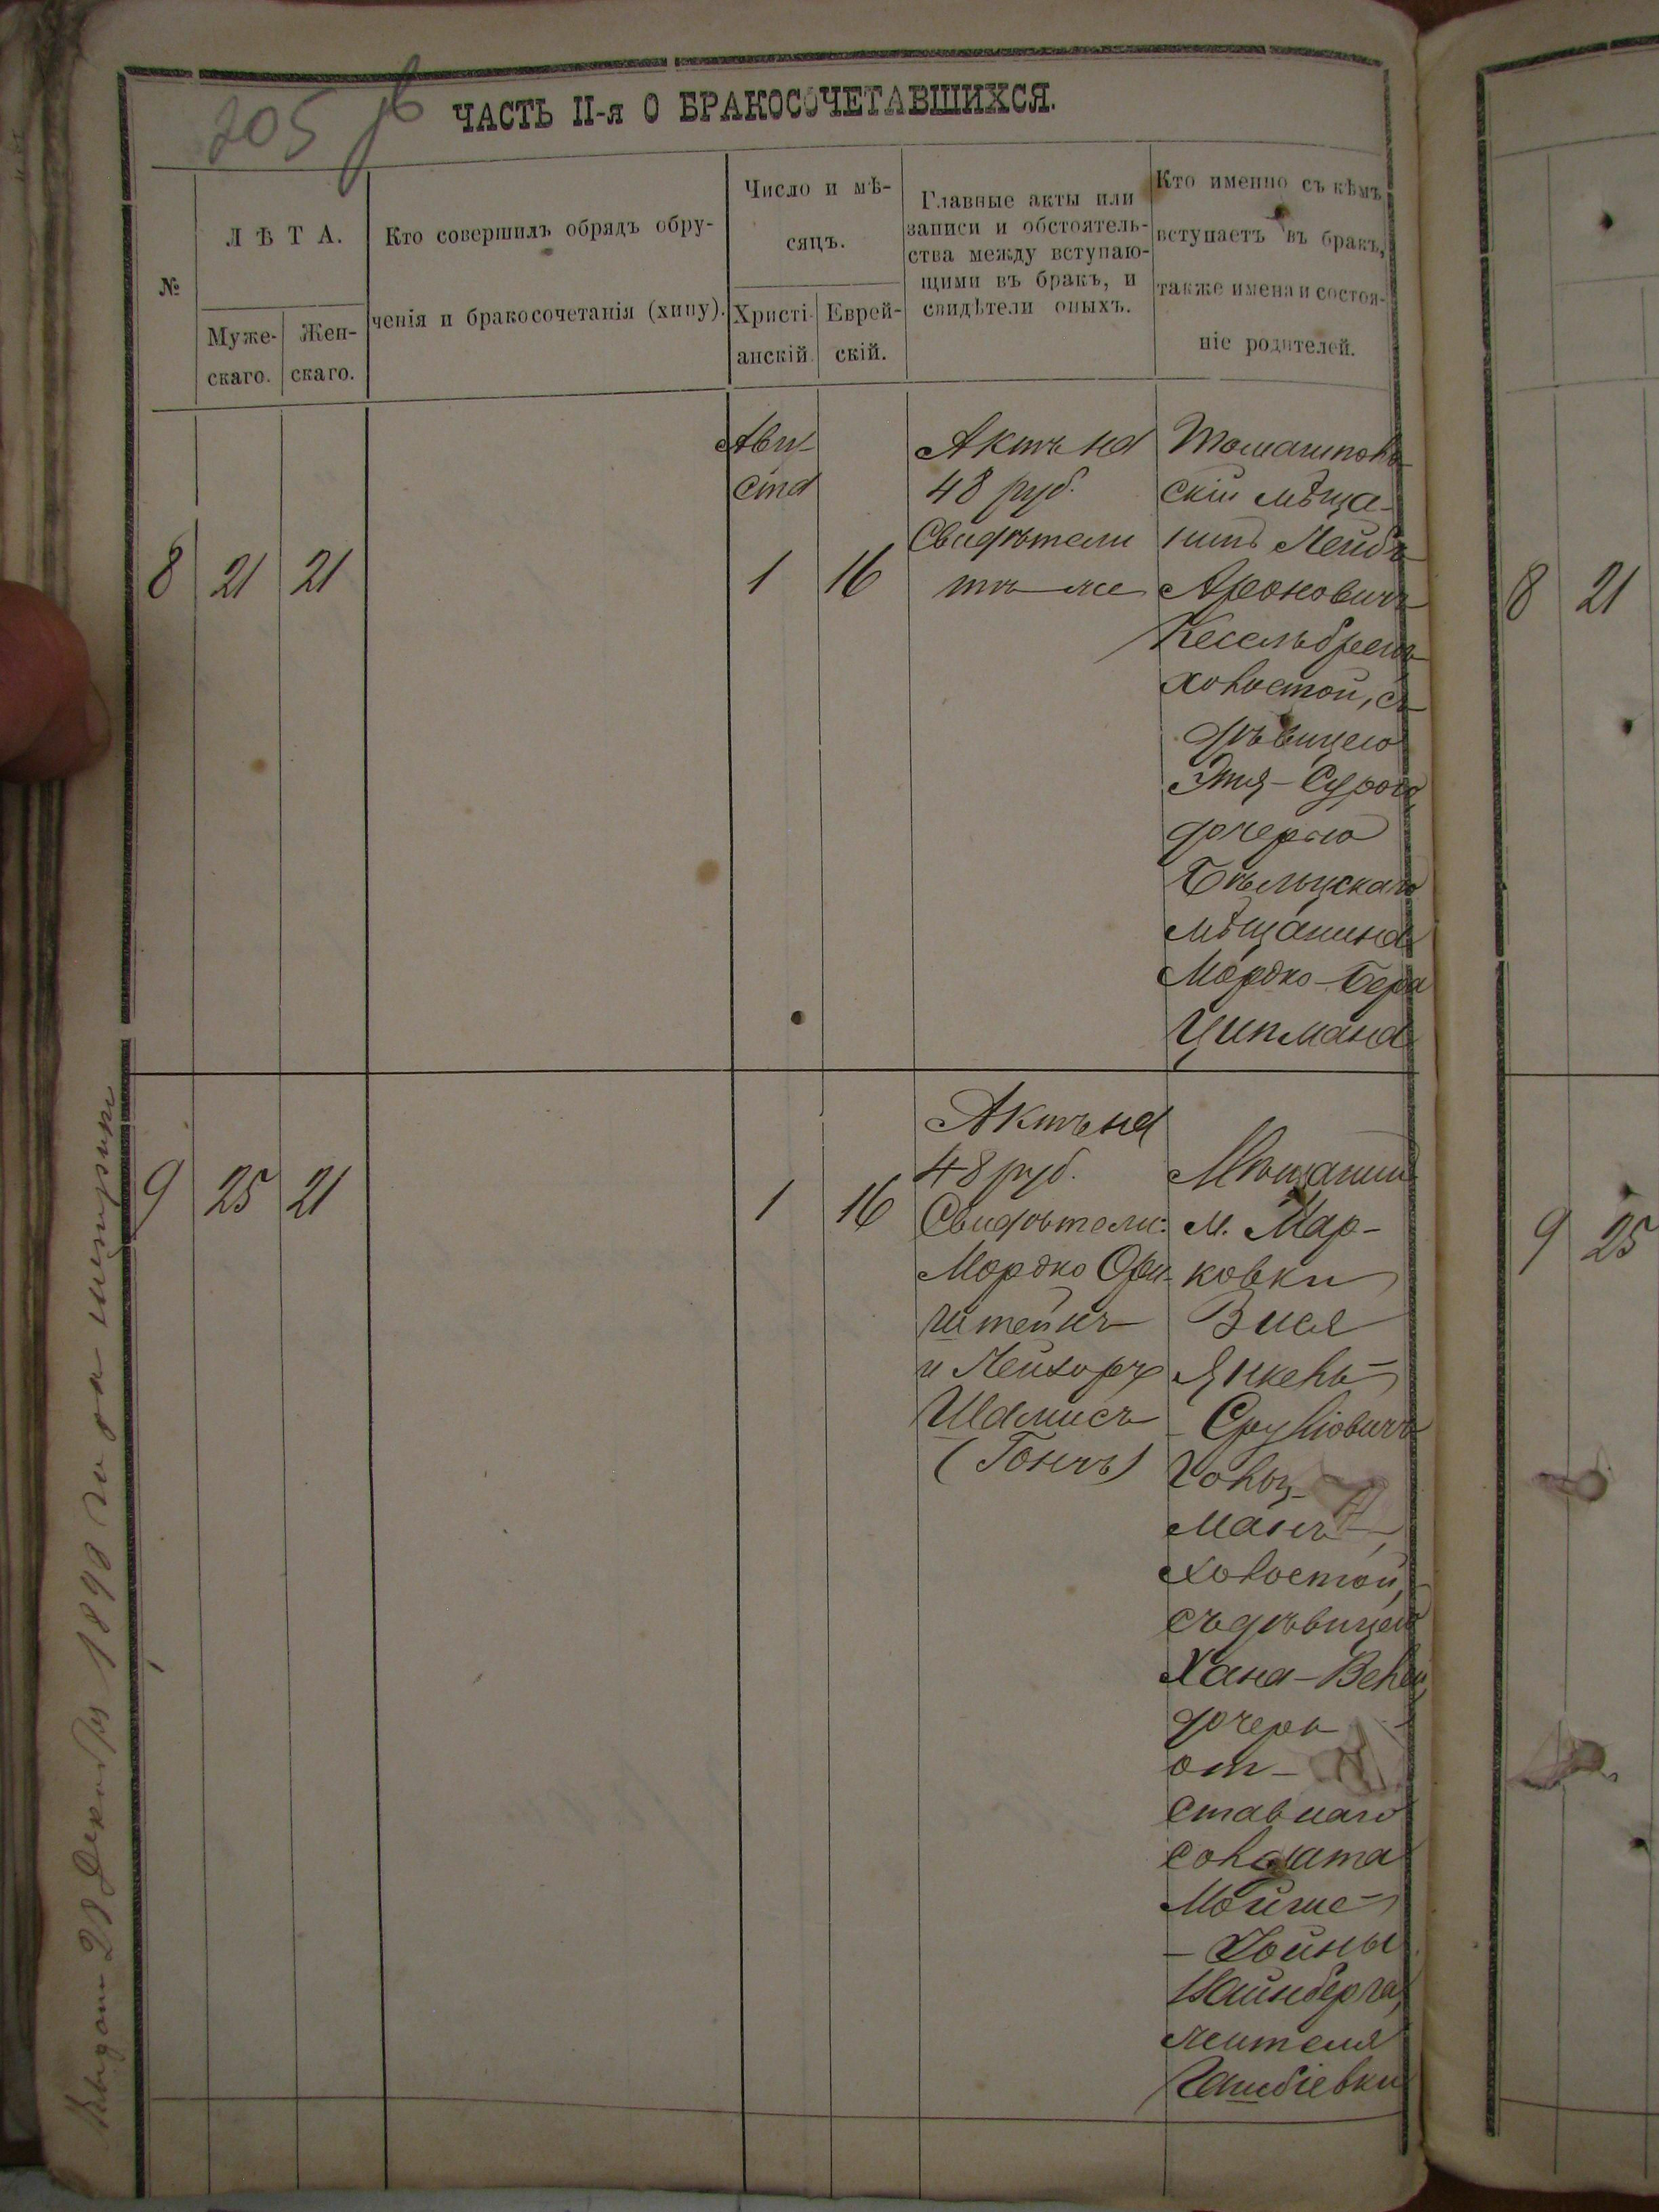 205
ЧАСТЬ II-я О БРАКОСОЧЕТАВШИХСЯ.
№
ЛѢТА.
Муже-
скаго.
Жен-
скаго.
Кто совершилъ обрядъ обру-
ченія и бракосочетанія (хипу).
Число и мѣ-
сяцъ.
Христі-
анскій.
Еврей-
скій.
Главные акты или
записи и обстоятель-
ства между вступаю-
щими въ бракъ, и
свидѣтели оныхъ.
Кто именно съ кѣмъ
вступаетъ въ бракъ,
также имена и состоя-
ніе родителей.
8
21
21
Авгу-
ста
1
16
Актъ на
48 руб.
Свидѣтели
тѣ же
Томашполь-
скій мѣща-
нинъ Лейбъ
Ароновичъ
холостой, съ
дѣвицею
Этя-Сурою,
дочерью
Бѣльцскаго
мѣщанина
Мордко-Бера
Ципмана
9
25
21
1
16
Актъ на
48 руб.
Свидѣтели:
Мордко Орн-
штейнъ
и Лейзоръ
Шамисъ
(Гончъ)
Мѣщанин
м. Мар-
ковки
Зися
Янкель-
- Сруліовичъ
Гольц-
манъ,
холостой,
съ дѣвицею
Хана-Велей,
дочерь
от-
ставнаго
солдата
Мойше-
- Хоины
Вайнберга,
жителя
8
21
9
25
28 Декабря 1898 года